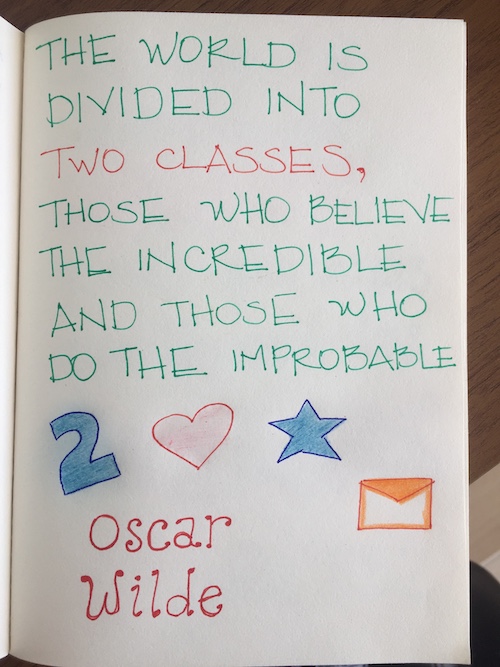 THE WORLD IS
DIVIDED INTO
TWO CLASSES,
THOSE WHO BELIEVE
THE INCREDIBLE
AND THOSE WHO
DO THE IMPROBABLE
2
Oscar
Wilde